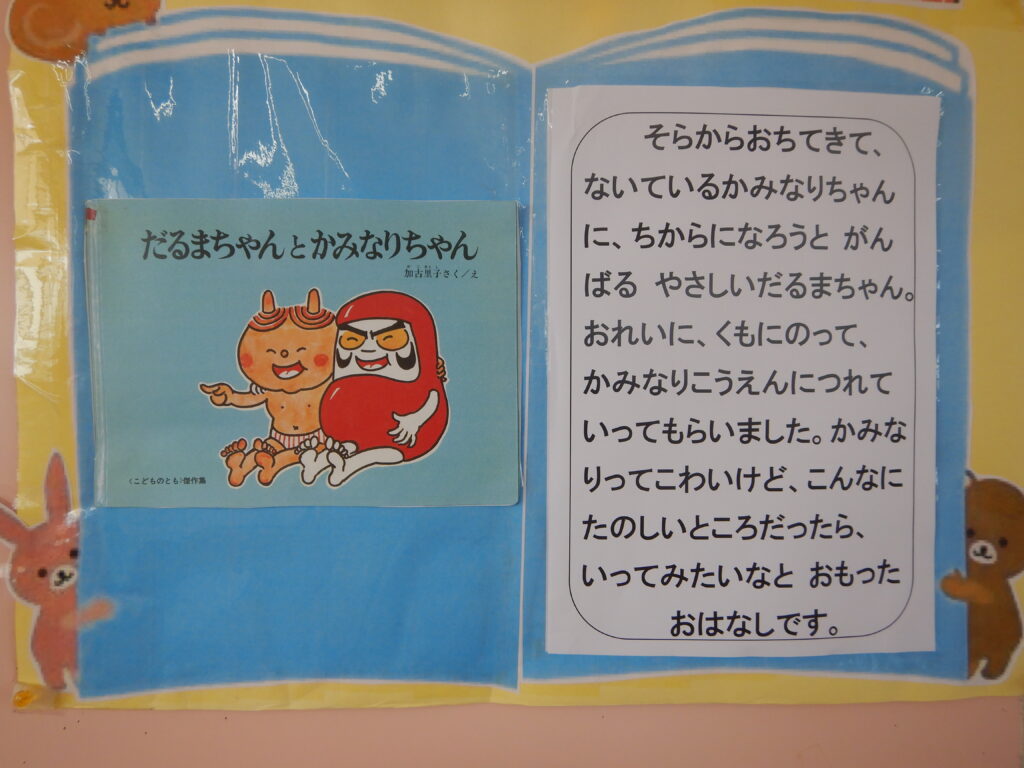 だるまちゃんとかみなりちゃん
加古里子さく／え
〈こどものとも〉傑作集
そらからおちてきて、
ないているかみなりちゃん
に、ちからになろうと がん
ばる やさしいだるまちゃん。
おれいに、くもにのって、
かみなりこうえんにつれて
いってもらいました。かみな
りってこわいけど、こんなに
たのしいところだったら、
いってみたいなと おもった
おはなしです。